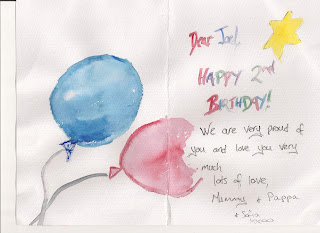 Dear Joel,
HAPPY 2nd
BIRTHDAY!
We are very proud of
you and love you very
much
lots of love,
Mummy & Pappa